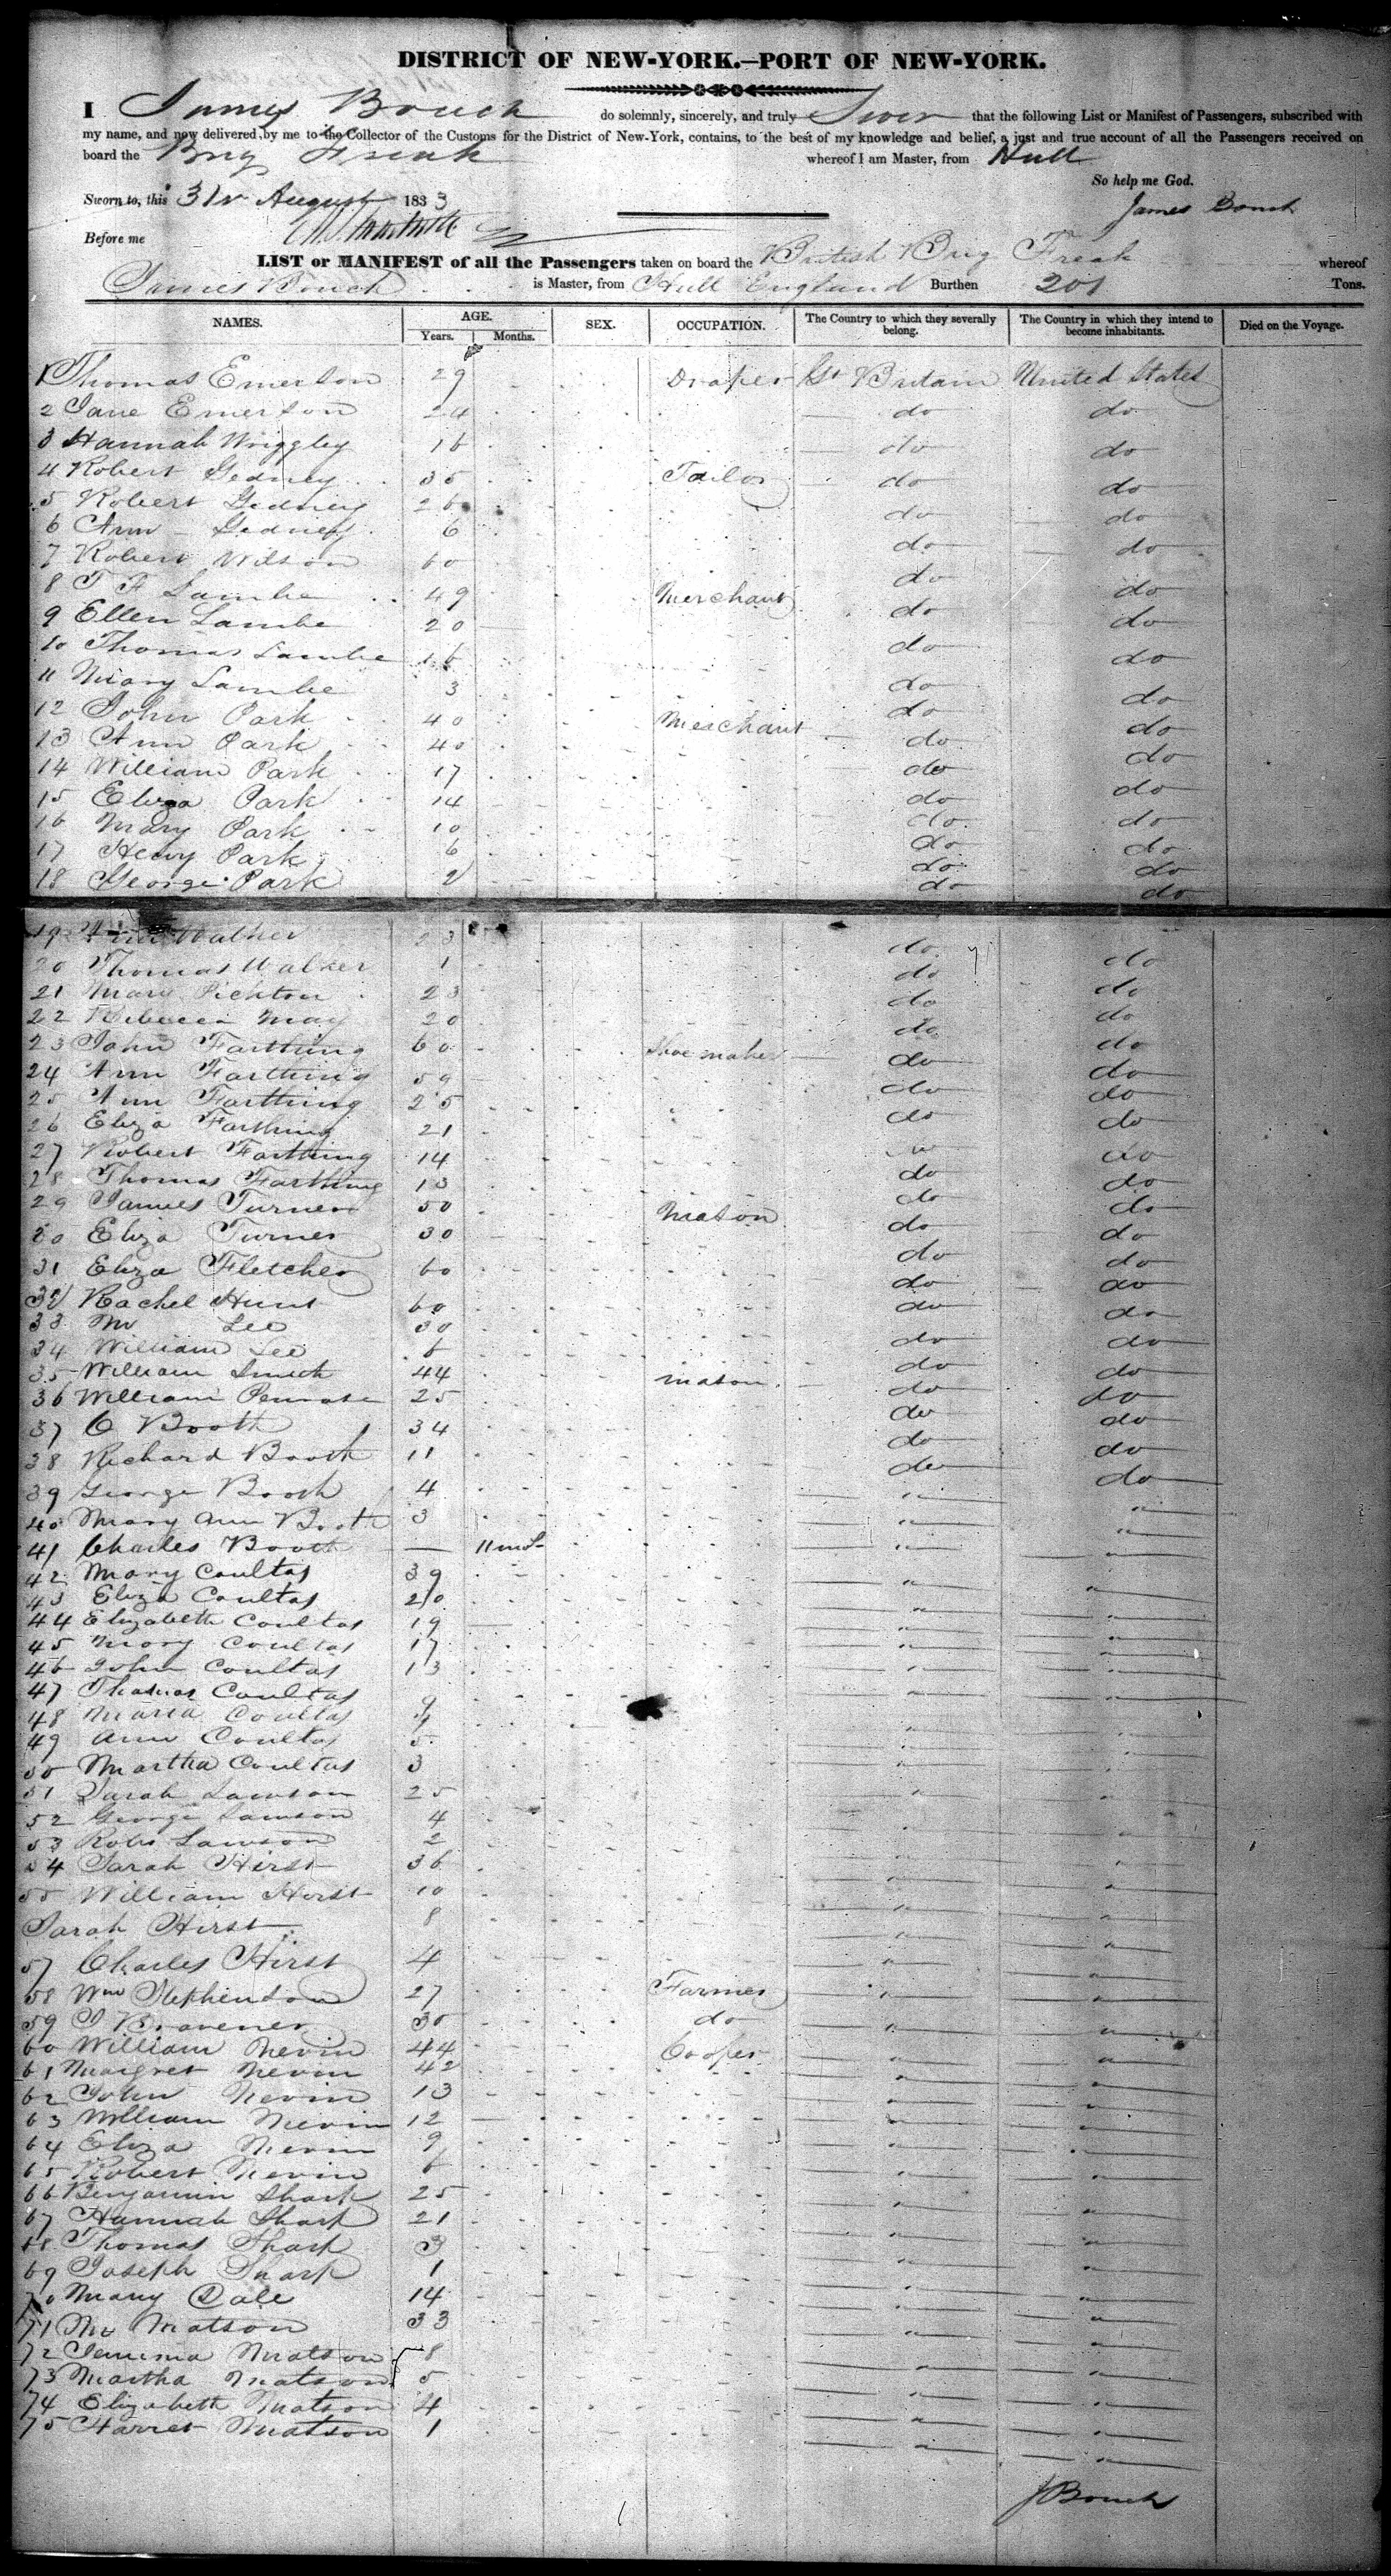 DISTRICT OF NEW-YORK.—PORT OF NEW-YORK.
I James Bouch do solemnly, sincerely, and truly Swear that the following List or Manifest of Passengers, subscribed with
my name, and now delivered by me to the Collector of the Customs for the District of New-York, contains, to the best of my knowledge and belief, a just and true account of all the Passengers received on
board the Brig Freak whereof I am Master, from Hull
So help me God.
Sworn to, this 31st August 1833 James Bouch
Before me
LIST or MANIFEST of all the Passengers taken on board the British Brig Freak whereof
James Bouch is Master, from Hull England Burthen 201 Tons.
NAMES. AGE. SEX. OCCUPATION. The Country to which they severally belong. The Country in which they intend to become inhabitants. Died on the Voyage.
Years. Months.
1 Thomas Emerson 29 Draper Gt Britain United States
2 Jane Emerson 24 do do
3 Hannah Wriggley 16 do do
4 Robert Gedney 35 Tailor do do
5 Robert Gedney 26 do do
6 Ann Gedney 6 do do
7 Robert Wilson 60 do do
8 T F Lambe 49 Merchant do do
9 Ellen Lambe 20 do do
10 Thomas Lambe 16 do do
11 Mary Lambe 3 do do
12 John Park 40 Merchant do do
13 Ann Park 40 do do
14 William Park 17 do do
15 Eliza Park 14 do do
16 Mary Park 10 do do
17 Henry Park 6 do do
18 George Park 2 do do
19 Walker 23 do do
20 Thomas Walker 1 do do
21 Mary Pickton 23 do do
22 Rebecca May 20 do do
23 John Farthing 60 Shoe maker do do
24 Ann Farthing 59 do do
25 Ann Farthing 25 do do
26 Eliza Farthing 21 do do
27 Robert Farthing 14 do do
28 Thomas Farthing 13 do do
29 James Turner 50 Mason do do
30 Eliza Turner 30 do do
31 Eliza Fletcher 60 do do
32 Rachel Hunt 60 do do
33 Lee 30 do do
34 William Lee 6 do do
35 William Smith 44 mason do do
36 William Penrose 25 do do
37 C Booth 34 do do
38 Richard Booth 11 do do
39 George Booth 4 " "
40 Mary Ann Booth 3 " "
41 Charles Booth — 11 mos " "
42 Mary Coultas 39 " "
43 Eliza Coultas 20 " "
44 Elizabeth Coultas 19 " "
45 Mary Coultas 17 " "
46 John Coultas 13 " "
47 Thomas Coultas 9 " "
48 Maria Coultas " "
49 Ann Coultas 5 " "
50 Martha Coultas 3 " "
51 Sarah Lawson 25 " "
52 George Lawson 4 " "
53 Robt Lawson 2 " "
54 Sarah Hirst 36 " "
55 William Hirst 10 " "
Sarah Hirst 8 " "
57 Charles Hirst 4 " "
58 Wm Stephenson 27 Farmer " "
59 30 do " "
60 William Nevin 44 Cooper " "
61 Margret Nevin 42 " "
62 John Nevin 13 " "
63 William Nevin 12 " "
64 Eliza Nevin 9 " "
65 Robert Nevin 6 " "
66 Benjamin Sharp 25 " "
67 Hannah Sharp 21 " "
68 Thomas Sharp 3 " "
69 Joseph Sharp 1 " "
70 Mary Dale 14 " "
71 Matson 33 " "
72 Jemima Matson 8 " "
73 Martha Matson 5 " "
74 Elizabeth Matson 4 " "
75 Harret Matson 1 " "
J Bouch